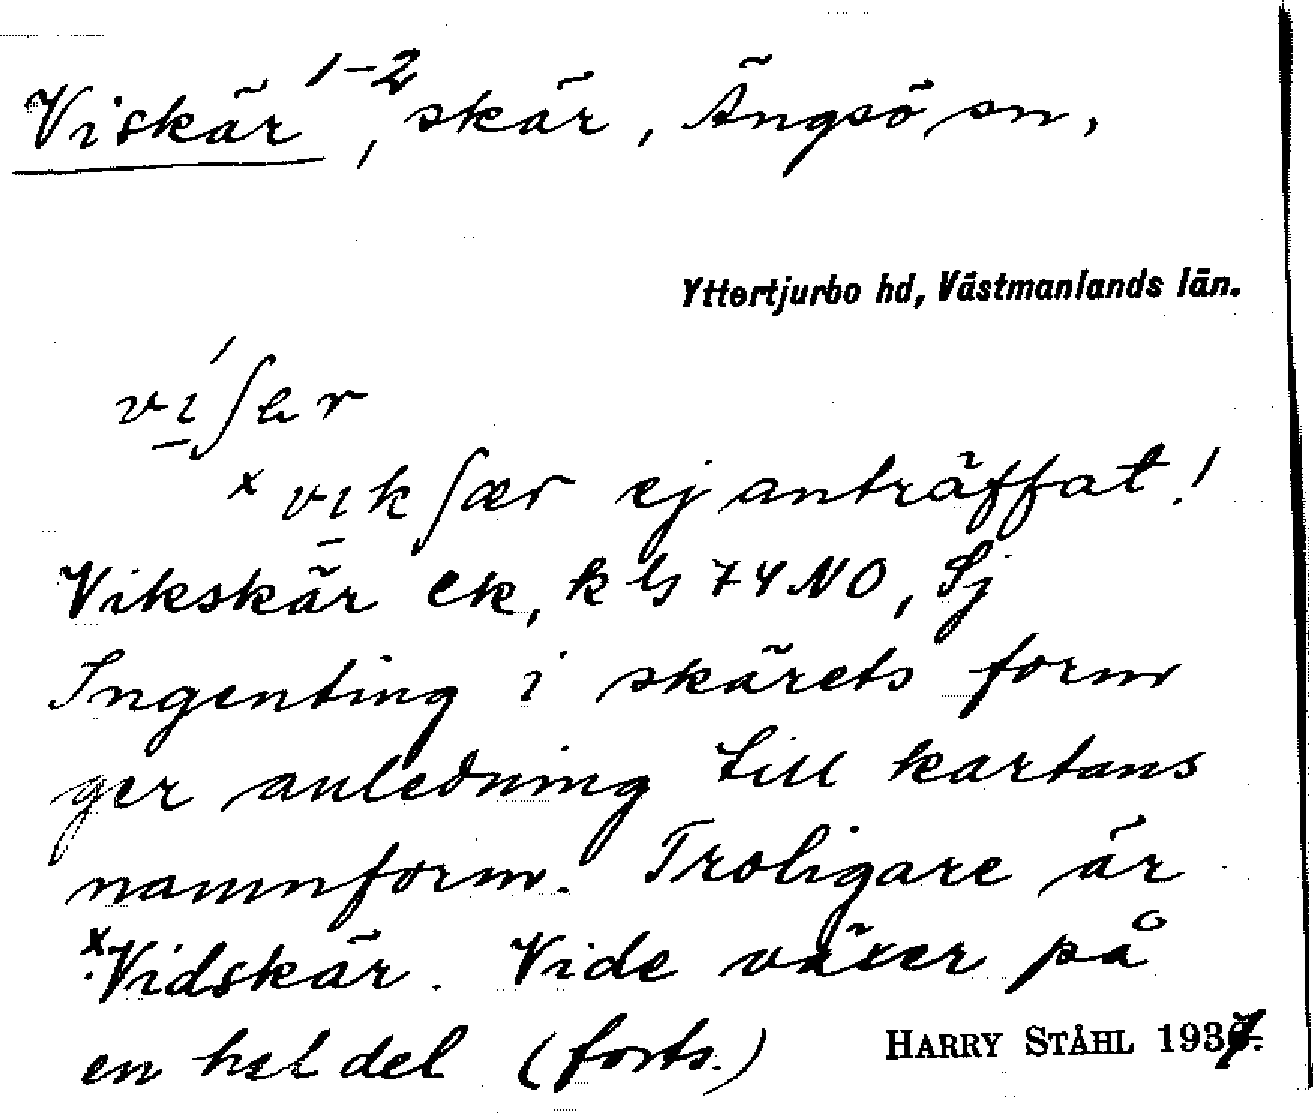 Viskär 1-2, skär, Ängsö sn,
Yttertjurbo hd, Västmanlands län.
ej anträffat!
Vikskär ek, k bl 74 NO, Sj
Ingenting i skärets form
ger anledning till kartans
namnform. Troligare är
xVidskär. Vide växer på
en hel del (forts.)
HARRY STÅHL 1937.